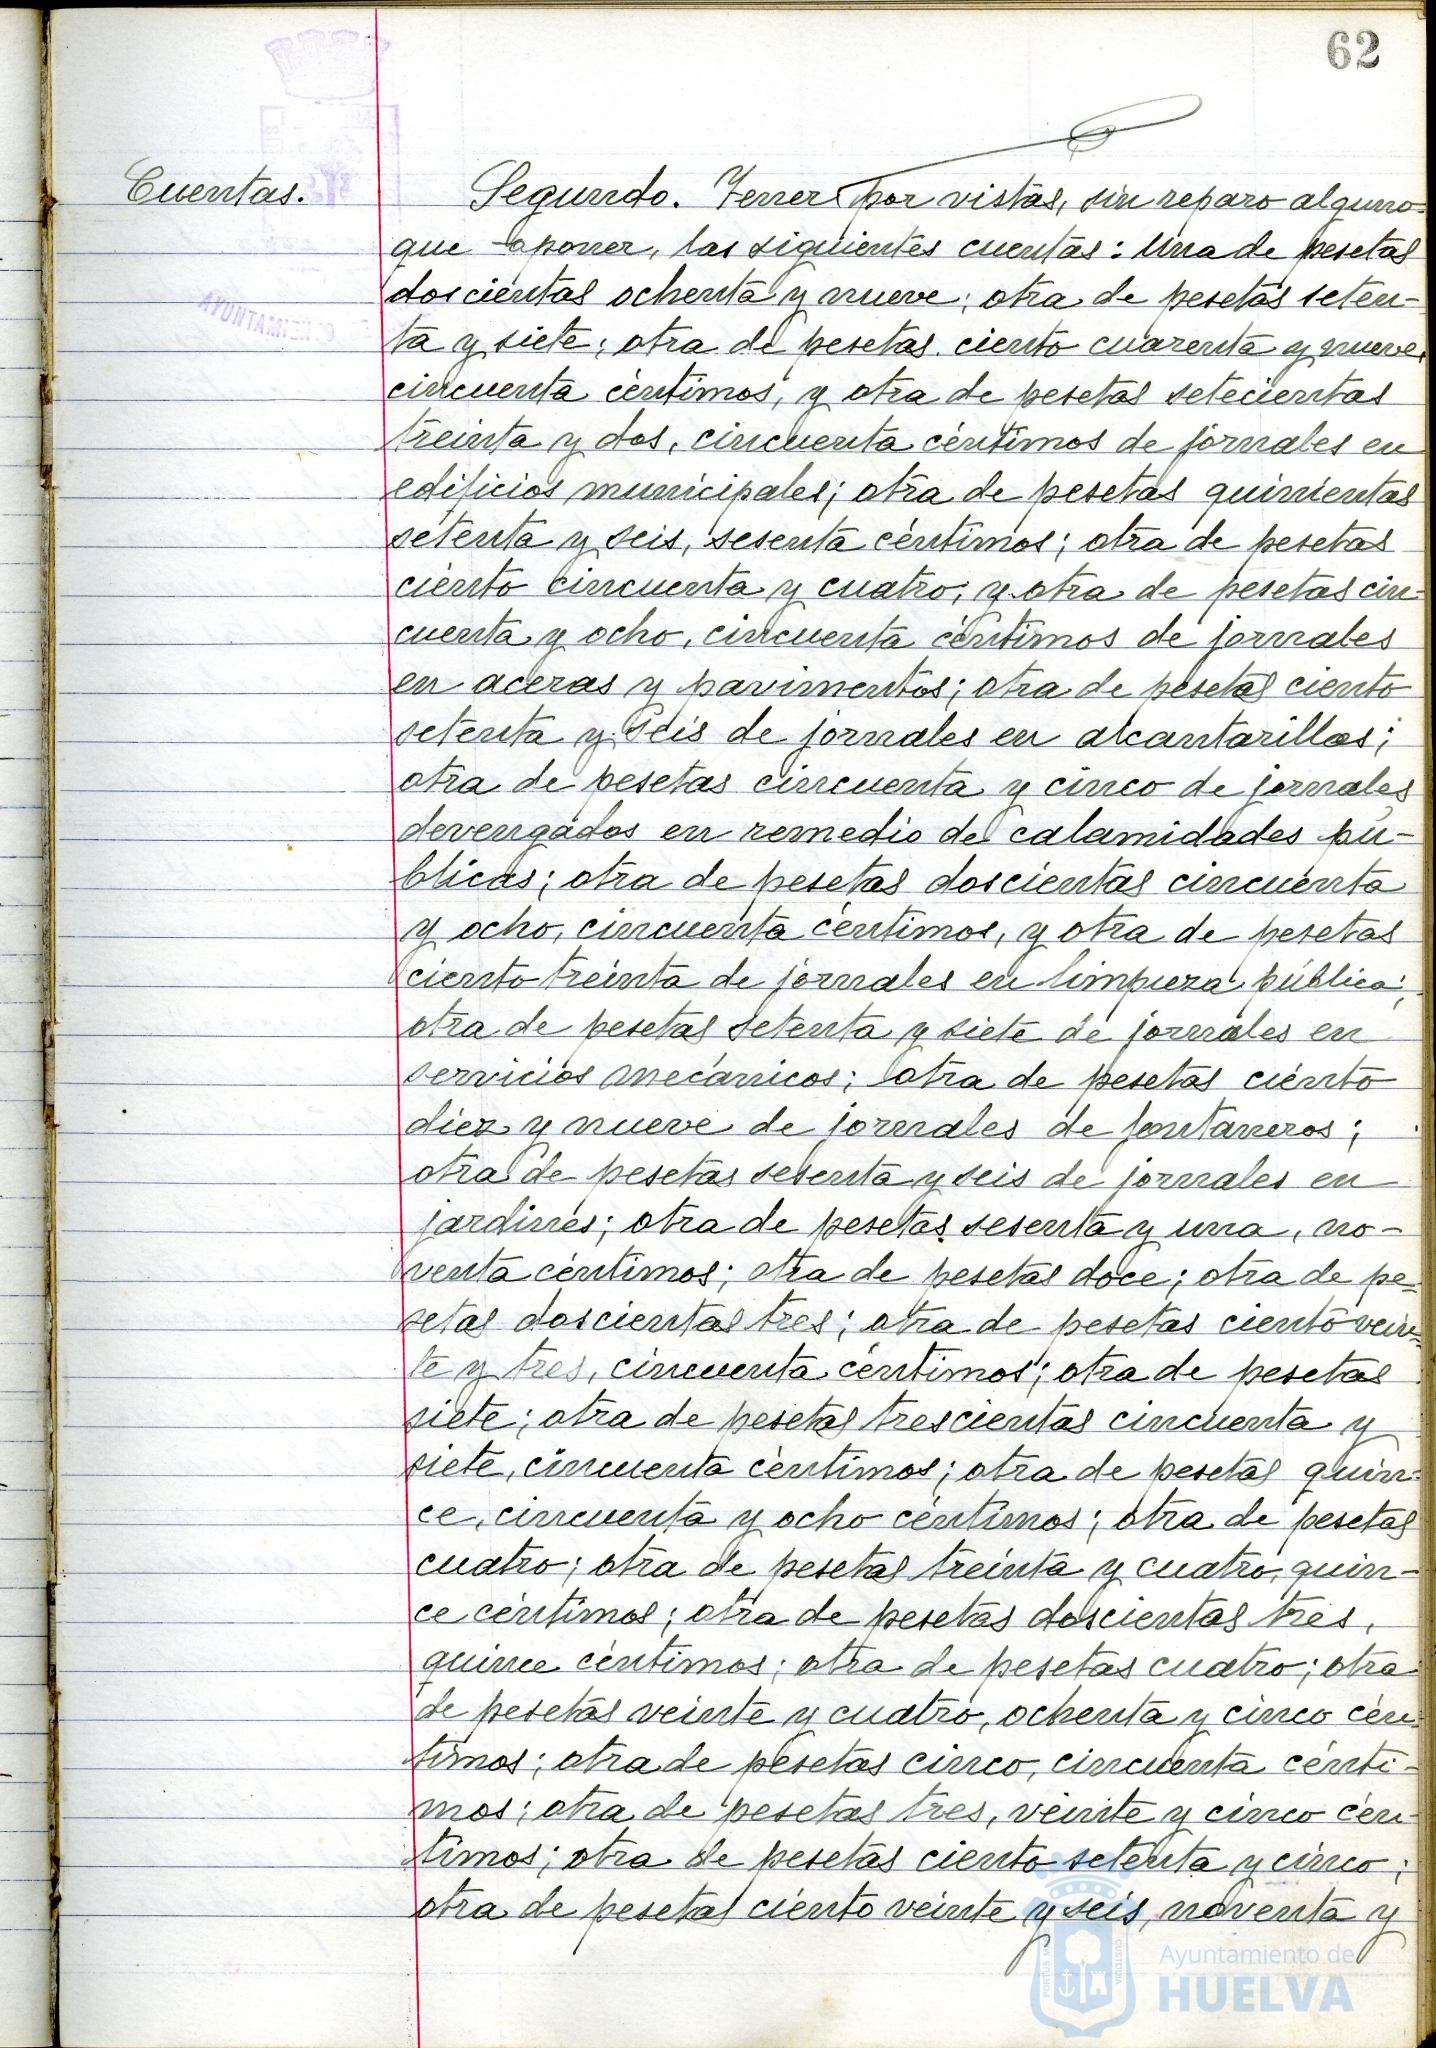 62
Cuentas.
Segundo. Tener por vistas, sin reparo alguno
que oponer, las siguientes cuentas: Una de pesetas
doscientas ochenta y nueve; otra de pesetas seten-
ta y siete; otra de pesetas ciento cuarenta y nueve,
cincuenta céntimos, y otra de pesetas setecientas
treinta y dos, cincuenta céntimos de jornales en
edificios municipales; otra de pesetas quinientas
setenta y seis, sesenta céntimos; otra de pesetas
ciento cincuenta y cuatro, y otra de pesetas cin-
cuenta y ocho, cincuenta céntimos de jornales
en aceras y pavimentos; otra de pesetas ciento
setenta y seis de jornales en alcantarillas;
otra de pesetas cincuenta y cinco de jornales
devengados en remedio de calamidades pú-
blicas; otra de pesetas doscientas cincuenta
y ocho, cincuenta céntimos, y otra de pesetas
ciento treinta de jornales en limpieza pública;
otra de pesetas setenta y siete de jornales en
servicios mecánicos; otra de pesetas ciento
diez y nueve de jornales de fontaneros;
otra de pesetas sesenta y seis de jornales en
jardines; otra de pesetas sesenta y una, no-
venta céntimos; otra de pesetas doce; otra de pe-
setas doscientas tres; otra de pesetas ciento vein-
te y tres, cincuenta céntimos; otra de pesetas
siete; otra de pesetas trescientas cincuenta y
siete, cincuenta céntimos; otra de pesetas quin-
ce, cincuenta y ocho céntimos; otra de pesetas
cuatro; otra de pesetas treinta y cuatro, quin-
ce céntimos; otra de pesetas doscientas tres,
quince céntimos; otra de pesetas cuatro; otra
de pesetas veinte y cuatro, ochenta y cinco cén-
timos; otra de pesetas cinco, cincuenta cénti-
mos; otra de pesetas tres, veinte y cinco cén-
timos; otra de pesetas ciento setenta y cinco;
otra de pesetas ciento veinte y seis, noventa y
Ayuntamiento de
HUELVA